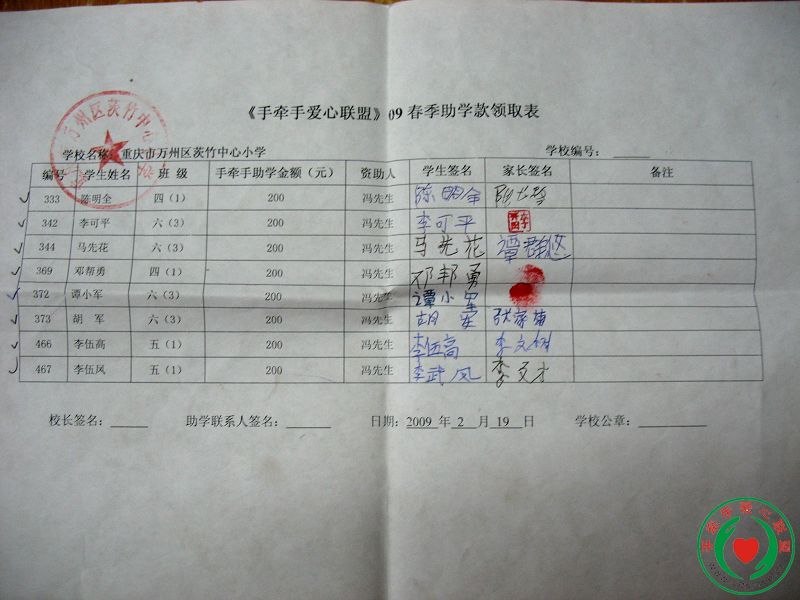 《手牵手爱心联盟》09 春季助学款领取表
学校名称：重庆市万州区茨竹中心小学 学校编号：
编号 学生姓名 班 级 手牵手助学金额（元） 资助人 学生签名 家长签名 备注
333 陈明全 四（1） 200 冯先生 陈明全
342 李可平 六（3） 200 冯先生 李可平
344 马先花 六（3） 200 冯先生 马先花 谭群悠
369 邓帮勇 四（1） 200 冯先生 邓邦勇
372 谭小军 六（3） 200 冯先生 谭小军
373 胡 军 六（3） 200 冯先生 胡 军 张家菊
466 李伍高 五（1） 200 冯先生 李伍高 李文树
467 李伍凤 五（1） 200 冯先生 李武凤 李文才
校长签名： 助学联系人签名： 日期：2009 年 2 月 19 日 学校公章：
手牵手爱心联盟